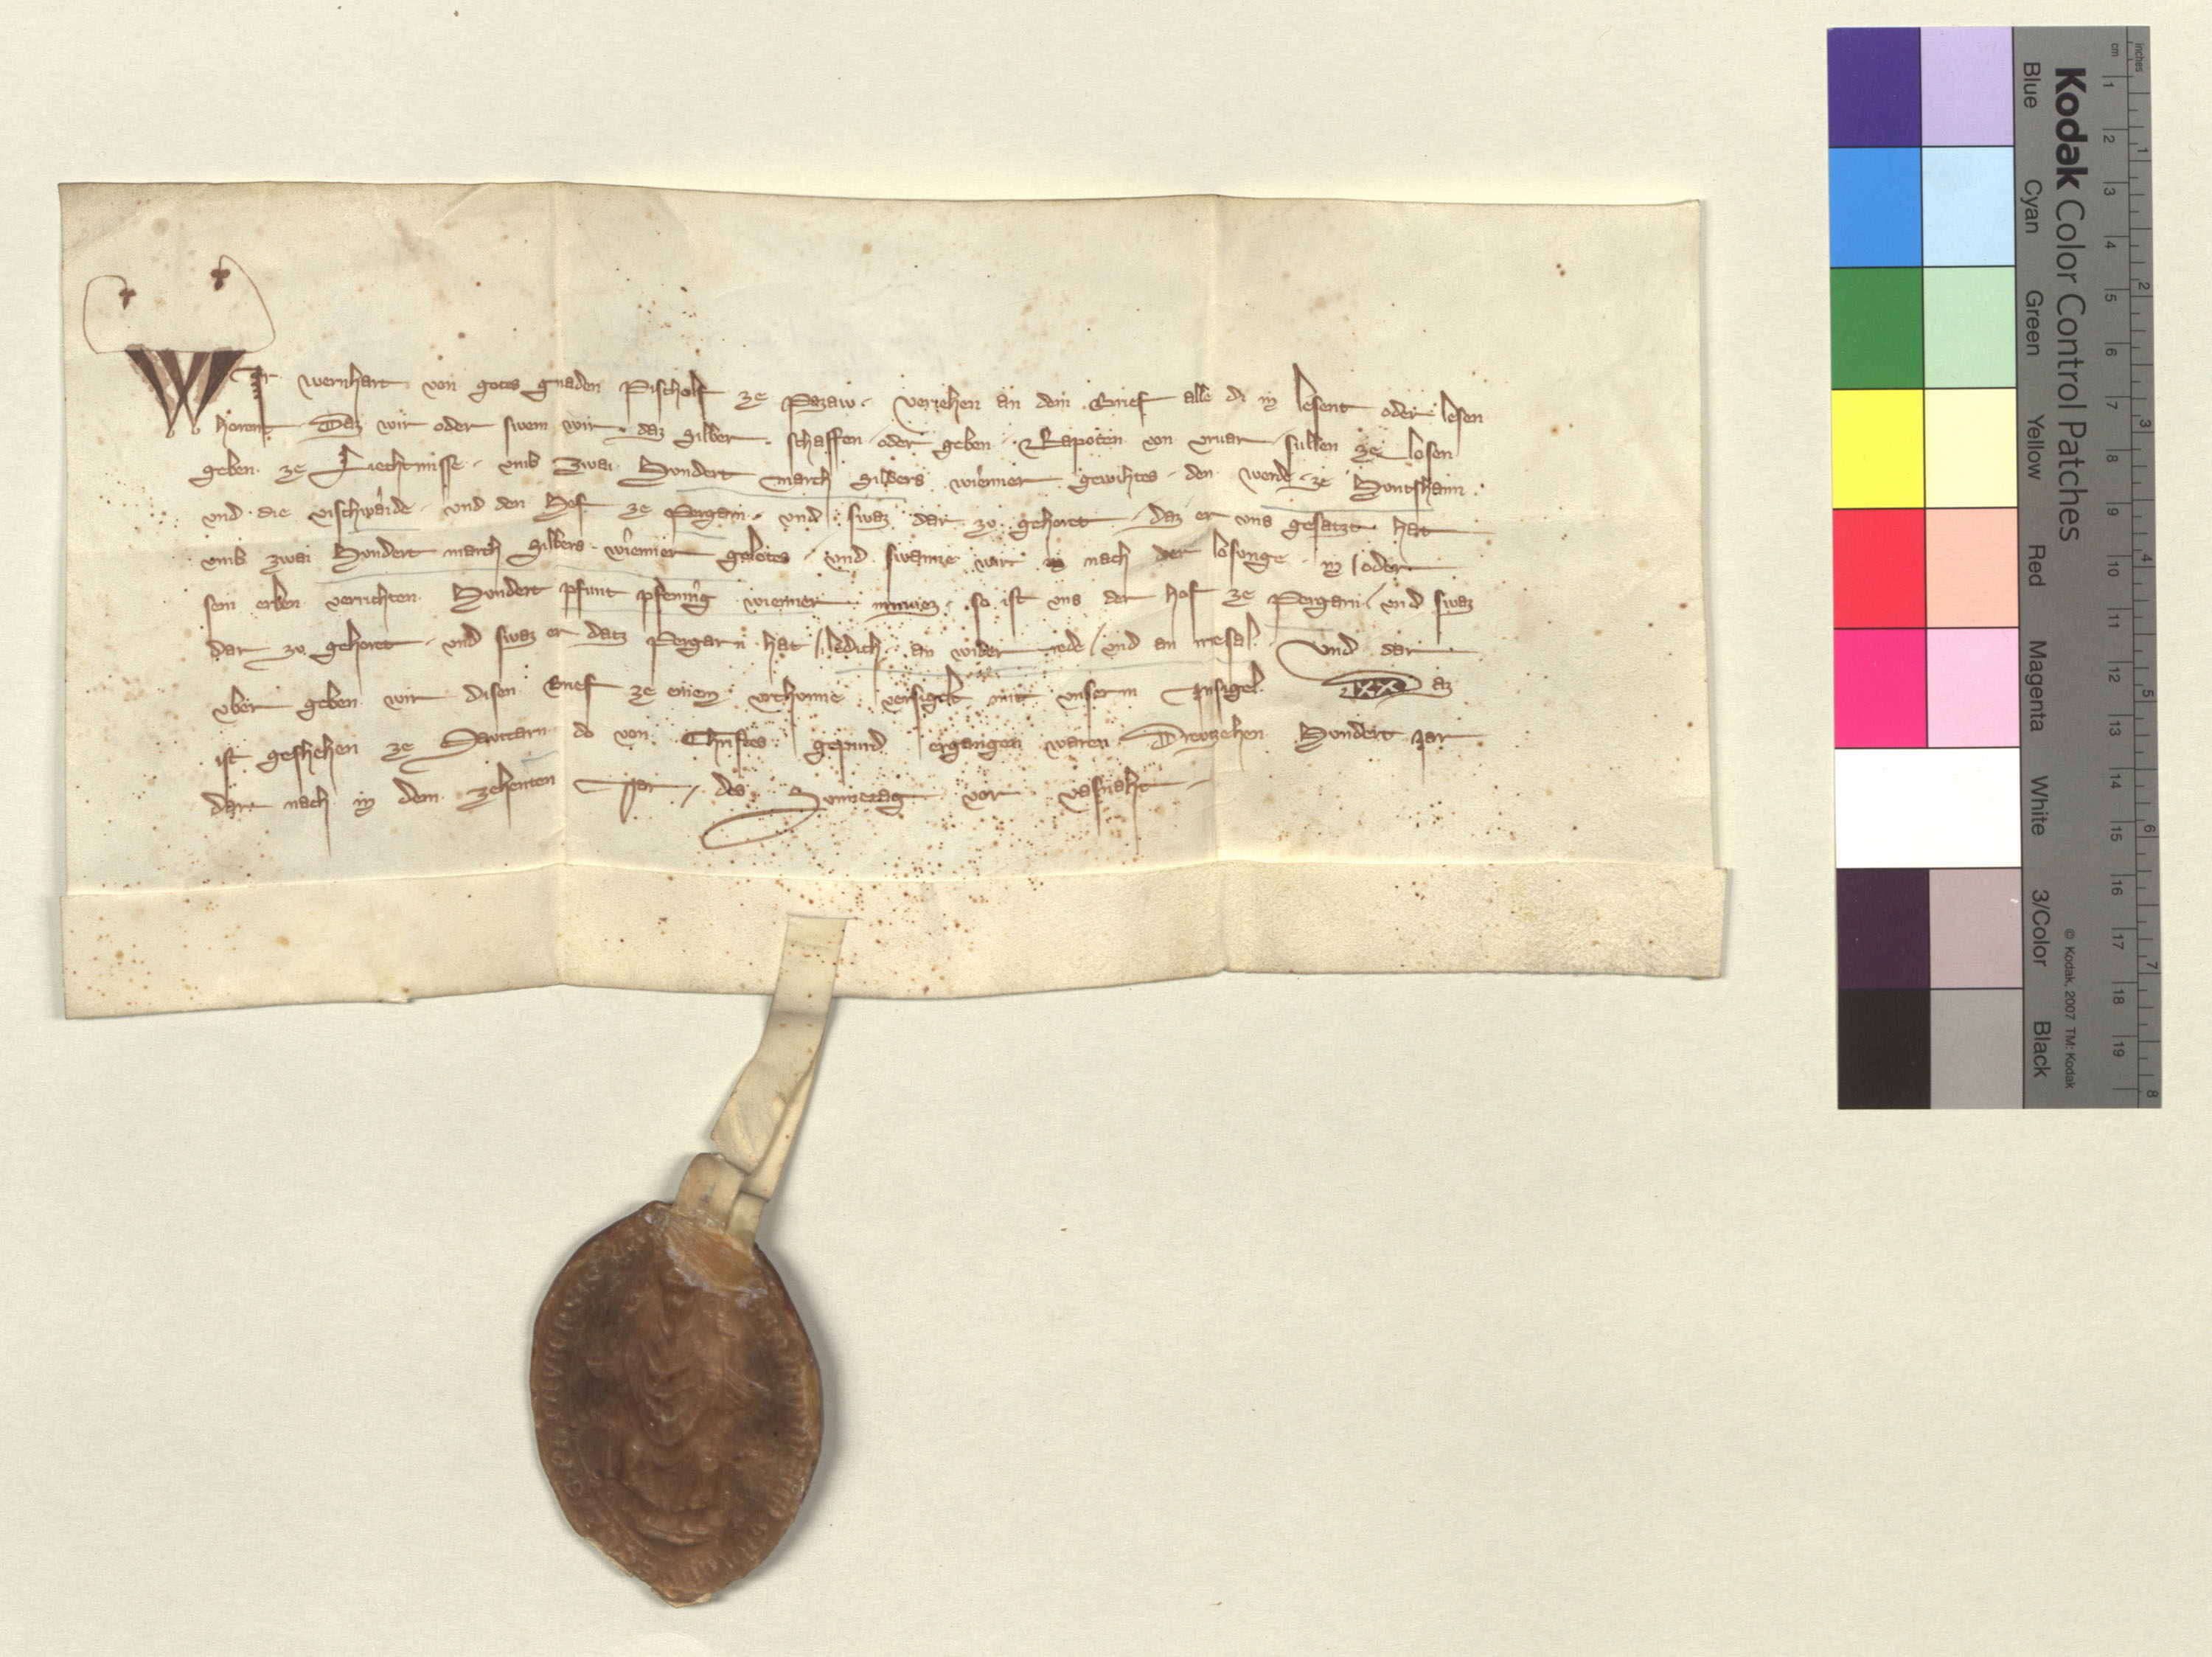 WIr wernhart von gotes gnaden Pischolf ze Pazaw. veriehen an dem Brief alle di in lesent oder lesen
horent. Daz wir oder swem wir. daz silber. schaffen oder geben. Rapoten von vruar sullen ze losen
geben. ze Liechtmisse. vmb zwai Hundert march silbers wienner gewihtes. den werde ze Huntshaim.
vnd die vischwaide. vnd den Hof ze Pergarn. vnd swaz dar zv gehoret. daz er vns gesatzt hat
vmb zwai Hundert march silbers wienner gelotes. vnd swanne wir nach der losunge in oder
sein erben verrichten. Hundert pfunt pfenning wienner. so ist vns der hof ze Pergarn. vnd swaz
dar zv gehoret. vnd swaz er datz Pergarn hat ledich. an wider rede vnd an irresal. Vnd dar
vber geben wir disen Brief ze einem vrchunne versigelt mit vnserm Insigel. Daz
ist geshehen ze do von Christes gepurd ergangen waren Drevzehen Hundert jar
dar nach in dem zehenten Jar, des Svnnetag vor vasnaht
Kodak Color Control Patches
Blue Cyan Green Yellow Red Magenta White 3/Color Black
© Kodak, 2007 TM: Kodak
inches 1 2 3 4 5 6 7 8
cm 1 2 3 4 5 6 7 8 9 10 11 12 13 14 15 16 17 18 19